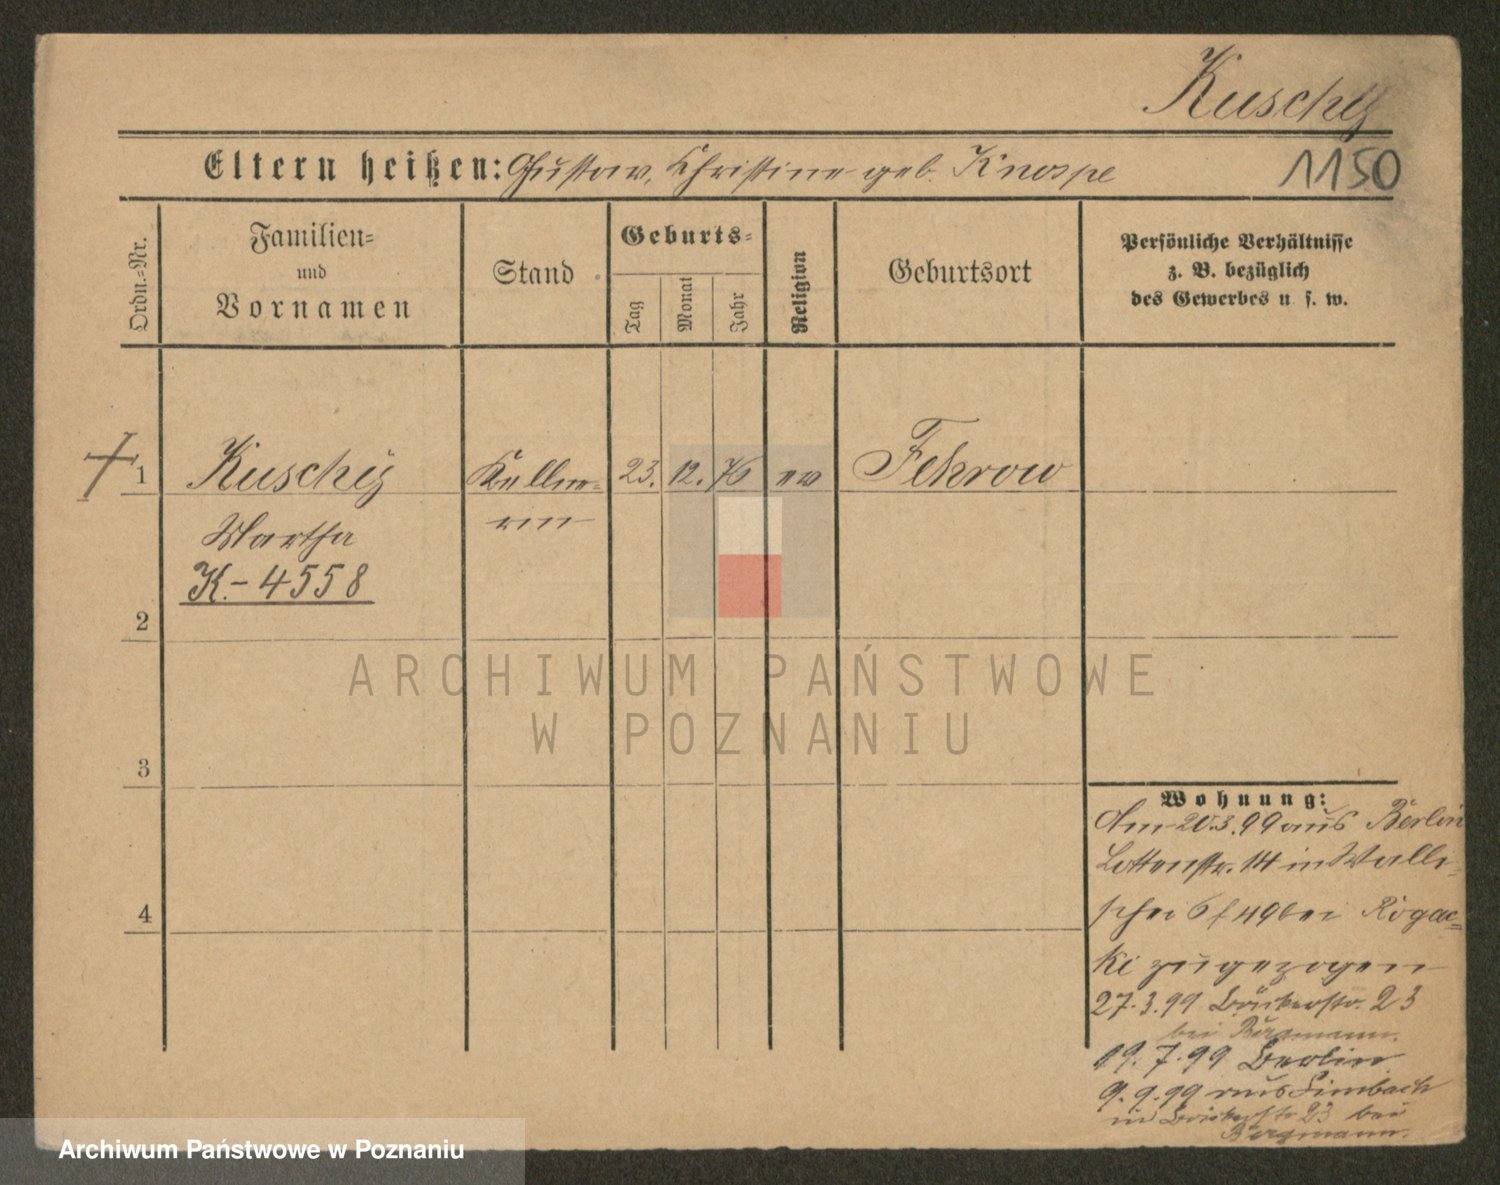 Kuschig
Eltern heißen: Gustav, Christine geb. Knospe
1150
Ordn.-Nr.
Familien-
und
Vornamen
Stand
Geburts-
Tag
Monat
Jahr
Religion
Geburtsort
Persönliche Verhältnisse
z. B. bezüglich
des Gewerbes u. s. w.
1 Kuschig Kellne- 23. 12. 76 ev Fehrow
Martha rin
K.-4558
2
3
4
ARCHIWUM PAŃSTWOWE
W POZNANIU
Wohnung:
Am 20.3.99 aus Berlin
14 in Walli-
schei 49 bei Rogac-
ki zugezogen
27.3.99 Bäckerstr. 23
bei Bergmann.
19.7.99 Berlin
9.9.99 aus Limbach
in Bäckerstr 23 bei
Bergmann.
Archiwum Państwowe w Poznaniu